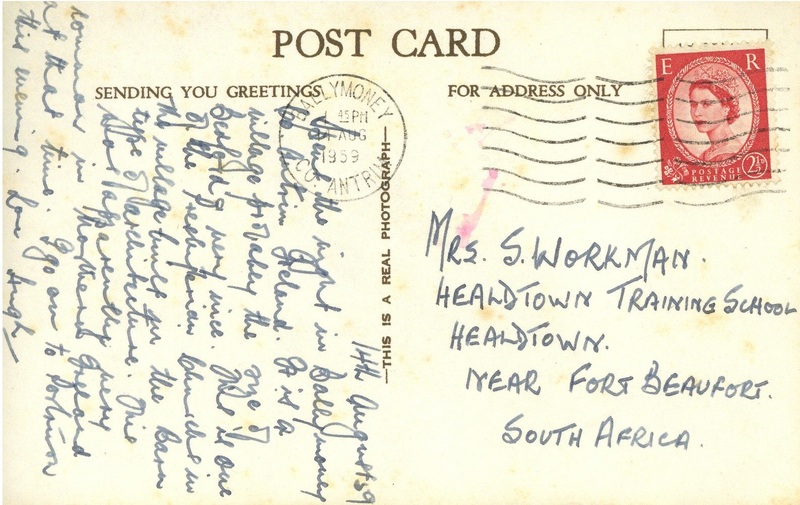 POST CARD
SENDING YOU GREETINGS
FOR ADDRESS ONLY
BALLYMONEY
45PM
14 AUG
1959
CO. ANTRIM
E R
POSTAGE
REVENUE
2½D
THIS IS A REAL PHOTOGRAPH
14th August 59
Spent the night in Ballymoney
Co Antrim Ireland. It is a
village probably the size of
Bedford very nice. This is one
of the Presbyterian Churches in
the village built in the Barn
type of architecture. This
was apparently very
common in Northern Ireland
at that time. I go on to
this evening. Love Hugh
MRS. S. WORKMAN.
HEALDTOWN TRAINING SCHOOL
HEALDTOWN.
NEAR FORT BEAUFORT.
SOUTH AFRICA.